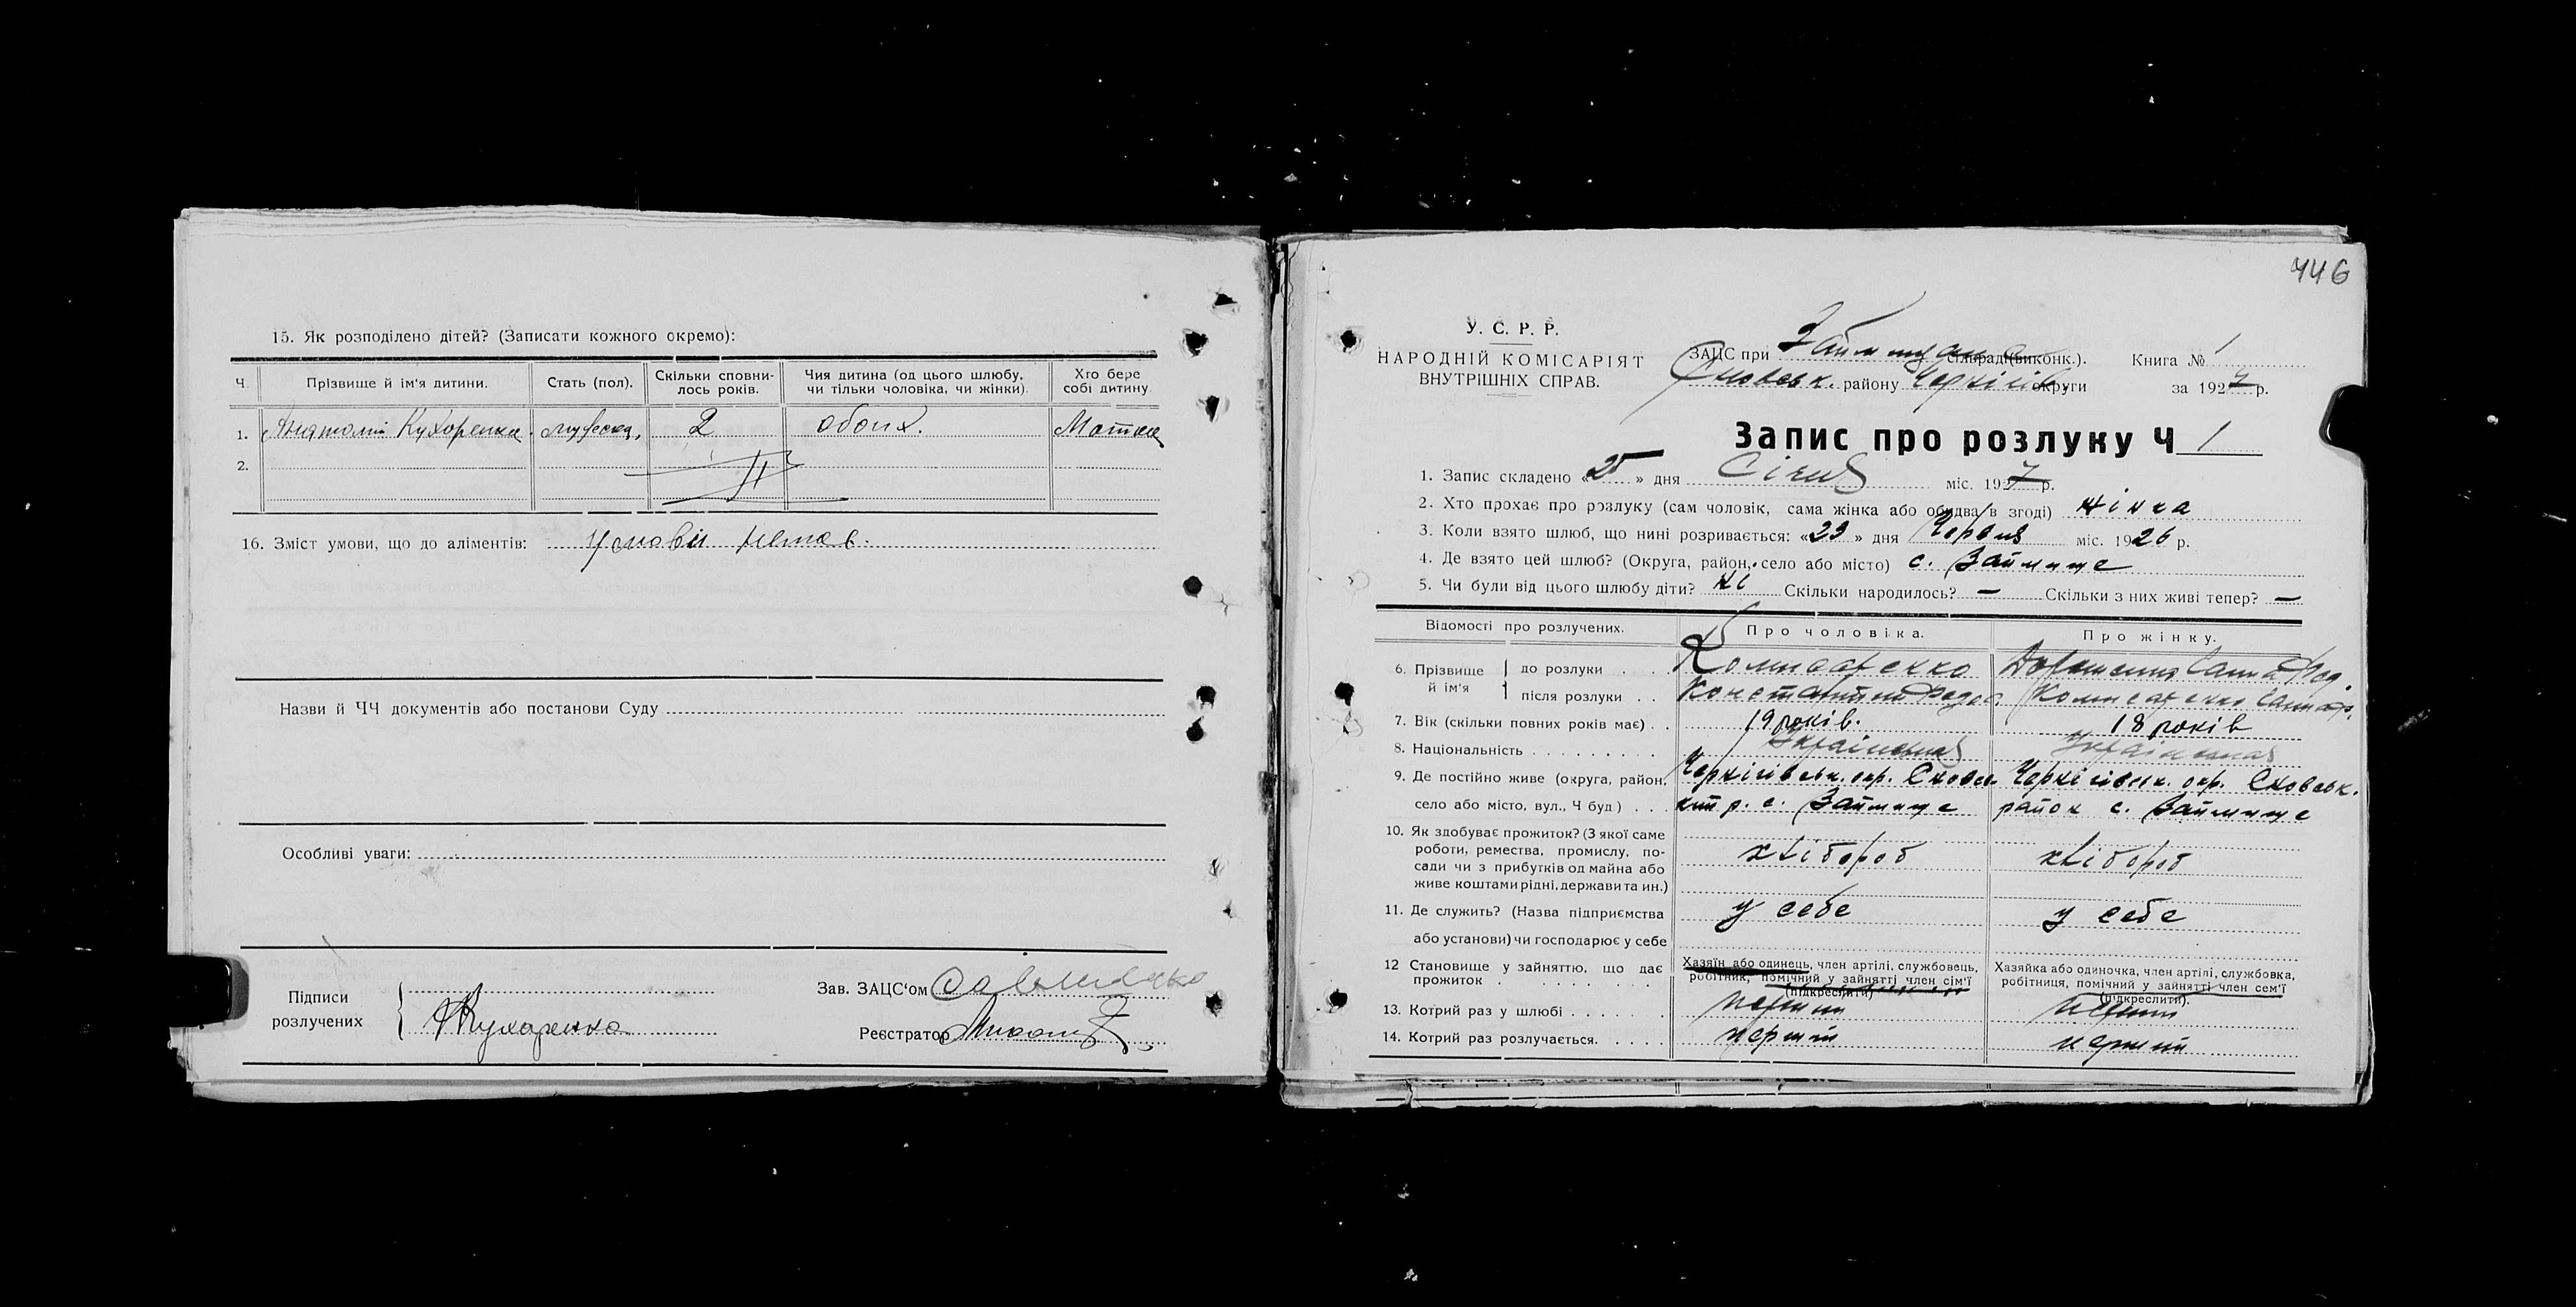 15. Як розподілено дітей? (Записати кожного окремо):
Ч. Прізвище й ім'я дитини. Стать (пол). Скільки сповни- лось років. Чия дитина (од цього шлюбу, чи тільки чоловіка, чи жінки) Хто бере собі дитину
1. Анатолій Кухоренка. 2 обоих.
2.
16. Зміст умови, що до аліментів: немає.
Назви й ЧЧ документів або постанови Суду
Особливі уваги:
Підписи розлучених Кухаренко
Зав. ЗАЦС'ом
Реєстратор
446
У. С. Р. Р.
НАРОДНІЙ КОМІСАРІЯТ
ВНУТРІШНІХ СПРАВ.
ЗАЦС при сільраді (виконк.). Книга № 1
Сновськ. району Чернігів. округи за 1927 р.
Запис про розлуку Ч 1
1. Запис складено «25» дня Січня міс. 1927 р.
2. Хто прохає про розлуку (сам чоловік, сама жінка або обидва в згоді) жінка
3. Коли взято шлюб, що нині розривається: «23» дня Червня міс. 1926 р.
4. Де взято цей шлюб? (Округа, район, село або місто) с. Займище
5. Чи були від цього шлюбу діти? ні Скільки народилось? — Скільки з них живі тепер? —
Відомості про розлучених. Про чоловіка. Про жінку.
6. Прізвище й ім'я до розлуки
після розлуки
7. Вік (скільки повних років має) 19 років. 18 років
8. Національність
9. Де постійно живе (округа, район, Чернігівськ. окр. Чернігівськ. окр. Сновськ.
село або місто, вул., Ч буд) р. с. Займище район с. Займище
10. Як здобуває прожиток? (З якої саме
роботи, ремества, промислу, по- хлібороб хлібороб
сади чи з прибутків од майна або
живе коштами рідні, держави та ин.)
11. Де служить? (Назва підприємства у себе у себе
або установи) чи господарює у себе
12 Становище у зайняттю, що дає прожиток
Хазяїн або одинець, член артілі, службовець, робітник, помічний у зайнятті член сім'ї (підкреслити)
Хазяйка або одиночка, член артілі, службовка, робітниця, помічний у зайнятті член сем'ї (підкреслити).
13. Котрий раз у шлюбі перший перший
14. Котрий раз розлучається. перший перший